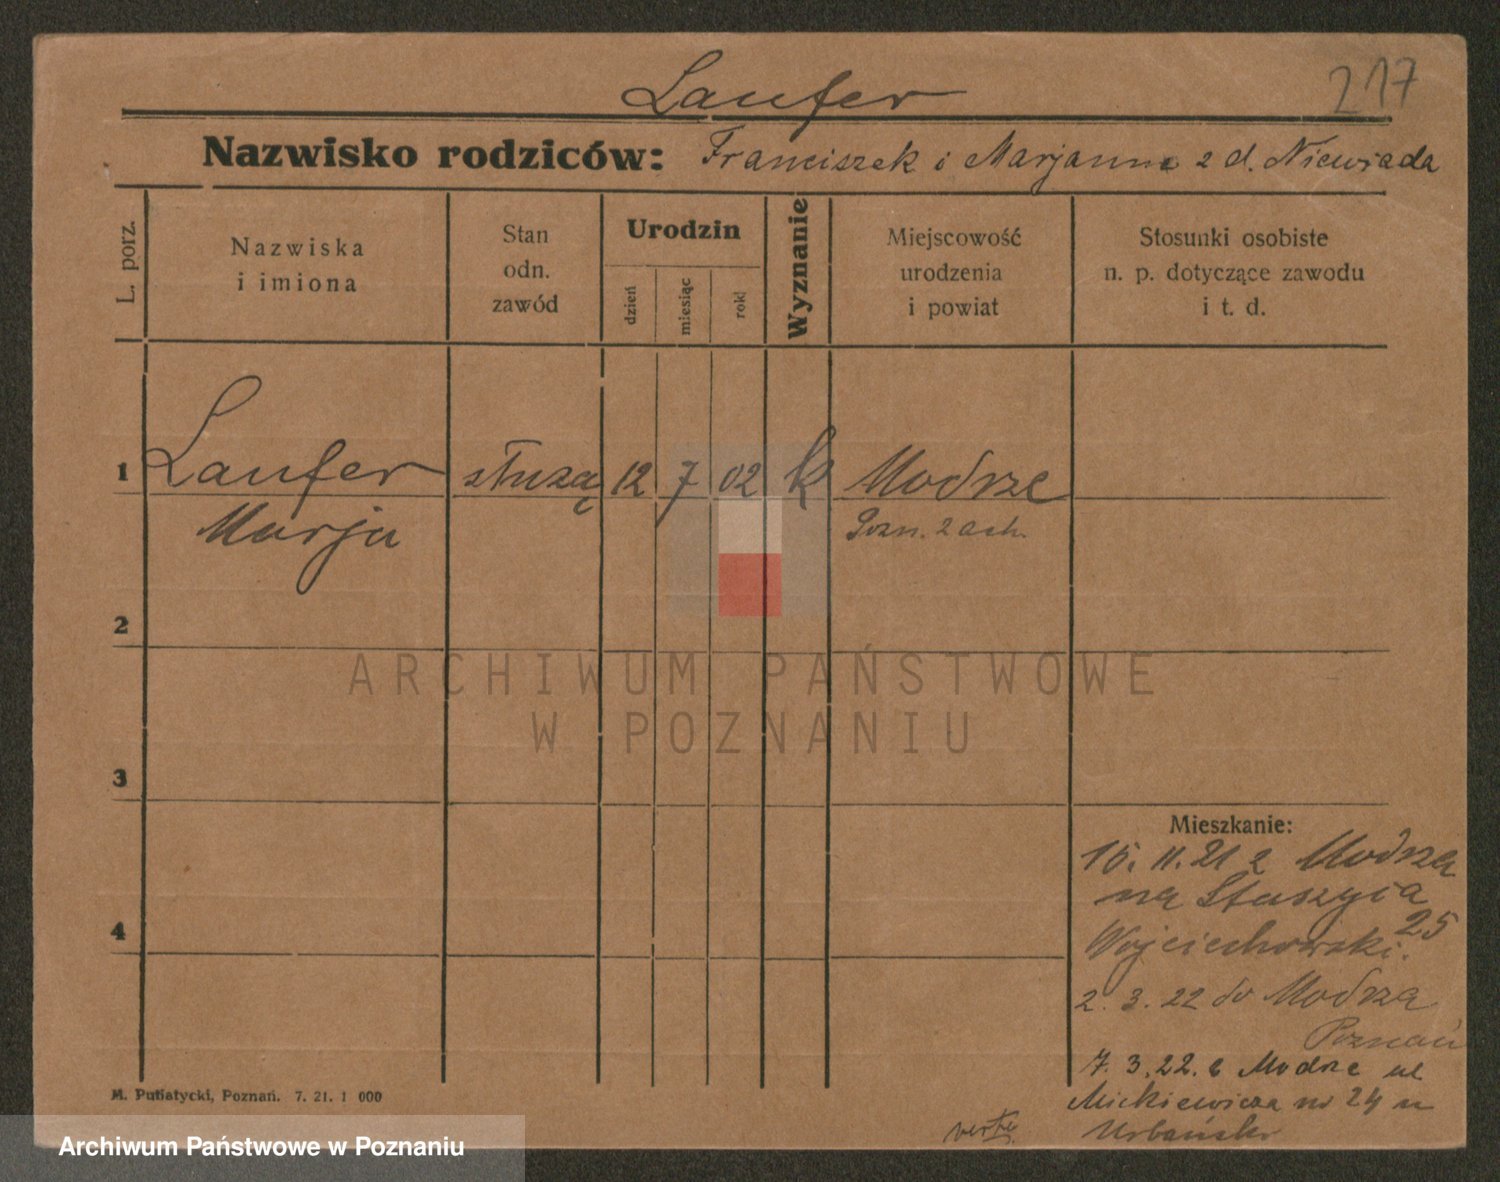 217
Laufer
Nazwisko rodziców: Franciszek i Marjanna z d. Niewiada
L. porz.
Nazwiska
i imiona
Stan
odn.
zawód
Urodzin
dzień
miesiąc
rok
Wyznanie
Miejscowość
urodzenia
i powiat
Stosunki osobiste
n. p. dotyczące zawodu
i t. d.
1
Laufer
służą
12
7
02
k
Modrze
Marja
Pozn. zach.
2
3
4
ARCHIWUM PAŃSTWOWE
W POZNANIU
Mieszkanie:
15. 11. 21 z Modrza
na Staszyca
25
Wojciechowski.
2. 3. 22 do Modrza
Poznań
7. 3. 22. z Modrze ul
Mickiewicza nr 24 u
Urbański
verte
M. Putiatycki, Poznań. 7. 21. 1 000
Archiwum Państwowe w Poznaniu